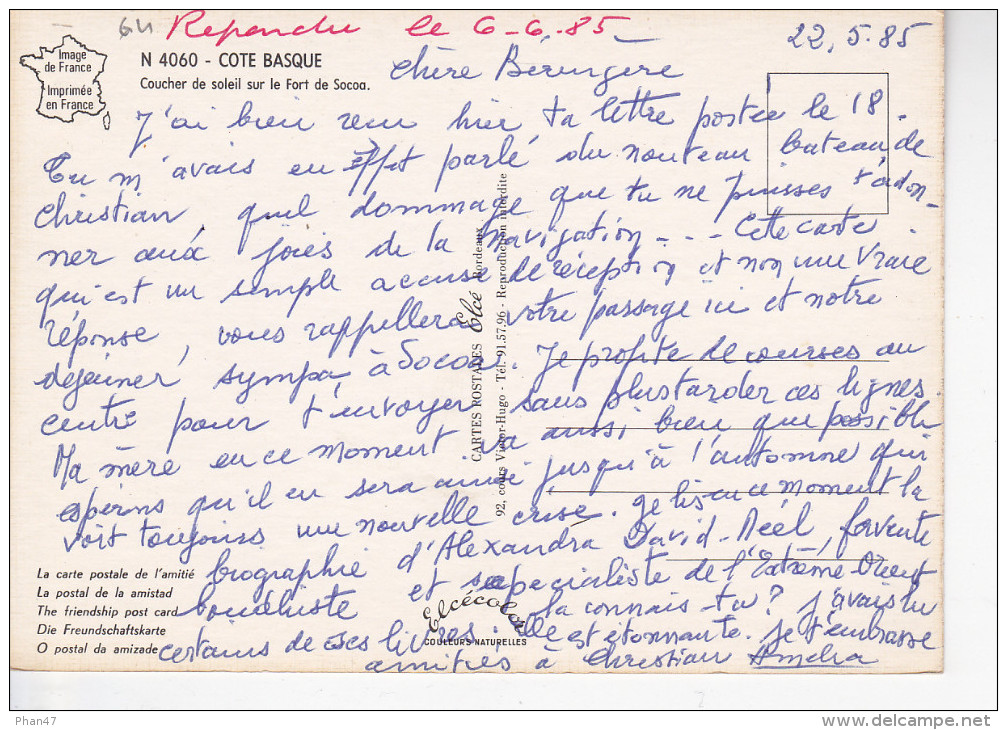 64 Repondu le 6-6.85
22.5.85
Image
de France
Imprimée
en France
N 4060 - COTE BASQUE
Coucher de soleil sur le Fort de Socoa.
Chère Bérengère
J'ai bien reçu hier ta lettre postée le 18.
Tu m'avais en effet parlé du nouveau bateau de
Christian quel dommage que tu ne puisses t'adon-
ner aux joies de la navigation... Cette carte
qui est un simple accusé de réception et non une vraie
réponse, vous rappellera votre passage ici et notre
déjeuner sympa à Socoa. Je profite de courses au
centre pour t'envoyer sans plus tarder ces lignes
Ma mère en ce moment va aussi bien que possible
espérons qu'il en sera ainsi jusqu'à l'automne qui
voit toujours une nouvelle crise. Je lis en ce moment la
biographie d'Alexandra David-Néel, fervente
boudhiste et specialiste de l'Extrême Orient
la connais-tu? J'avais lu
certains de ses livres. Elle est étonnante. Je t'embrasse
amitiés à Christian Amelia
CARTES ROSTAES Elcé Bordeaux
92, cours Victor-Hugo - Tél. 91.57.96 - Reproduction interdite
La carte postale de l'amitié
La postal de la amistad
The friendship post card
Die Freundschaftskarte
O postal da amizade
Elcécolor
COULEURS NATURELLES
Phan47
www.delcampe.net